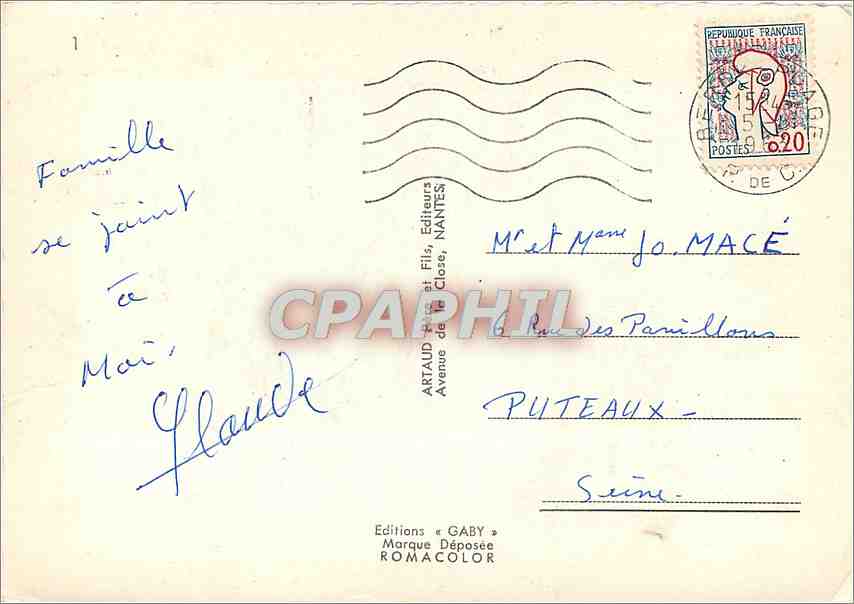 1
Famille
se joint
à
Moi.
Claude
ARTAUD Père et Fils, Editeurs
Avenue de la Close, NANTES
Editions « GABY »
Marque Déposée
ROMACOLOR
REPUBLIQUE FRANÇAISE
POSTES 0,20
DE
Mr et Mame Jo. MACÉ
6 Rue des Pavillons
PUTEAUX -
Seine -
CPAPHIL